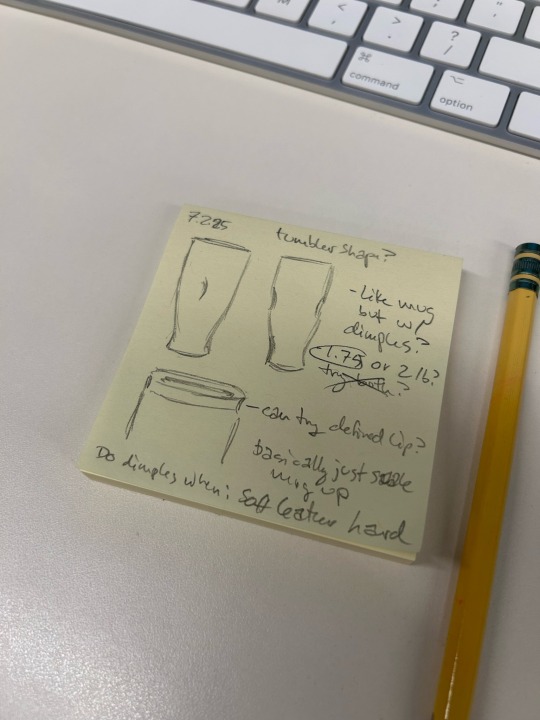 M
<
,
>
.
?
/
"
'
⌘
command
⌥
option
7.2.25
tumbler shape?
-Like mug
but w/
dimples?
-1.75 or 2 lb?
try both?
-can try defined lip?
basically just scale
mug up
Do dimples when: soft leather hard